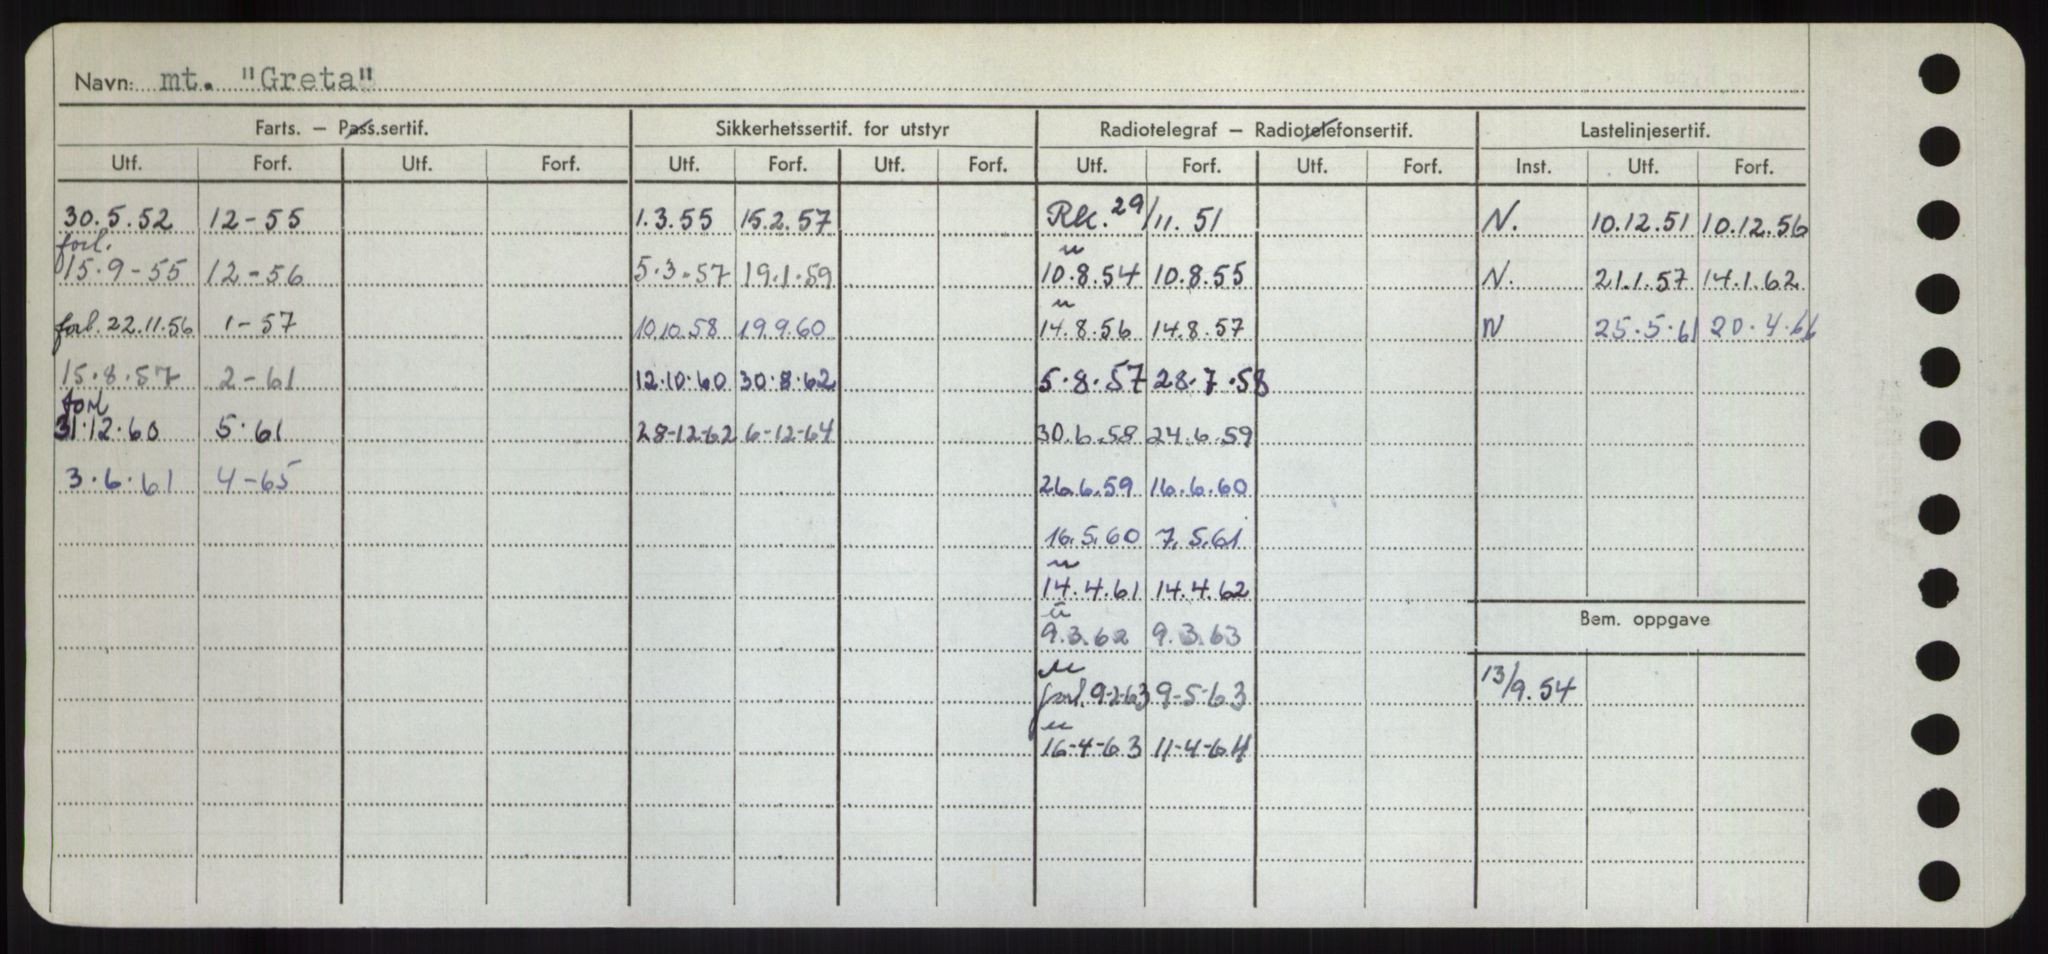 Navn: mt. "Greta"
Farts. – Pass.sertif. Sikkerhetssertif. for utstyr Radiotelegraf – Radiotelefonsertif. Lastelinjesertif.
Utf. Forf. Utf. Forf. Utf. Forf. Utf. Forf. Utf. Forf. Utf. Forf. Inst. Utf. Forf.
30.5.52 12-55 1.3.55 15.2.57 Rk. 29/11.51 N. 10.12.51 10.12.56
forl. u
15.9-55 12-56 5.3.57 19.1.59 10.8.54 10.8.55 N. 21.1.57 14.1.62
u
forl. 22.11.56 1-57 10.10.58 19.9.60 14.8.56 14.8.57 N 25.5.61 20.4.66
15.8.57 2-61 12.10.60 30.8.62 5.8.57 28.7.58
forl
31.12.60 5.61 28-12-62 6-12-64 30.6.58 24.6.59
3.6.61 4-65 26.6.59 16.6.60
16.5.60 7.5.61
u
14.4.61 14.4.62
u
Bem. oppgave
9.3.62 9.3.63
u
forl. 9-2-63 9-5-63 13/9.54
u
16-4-63 11-4-64